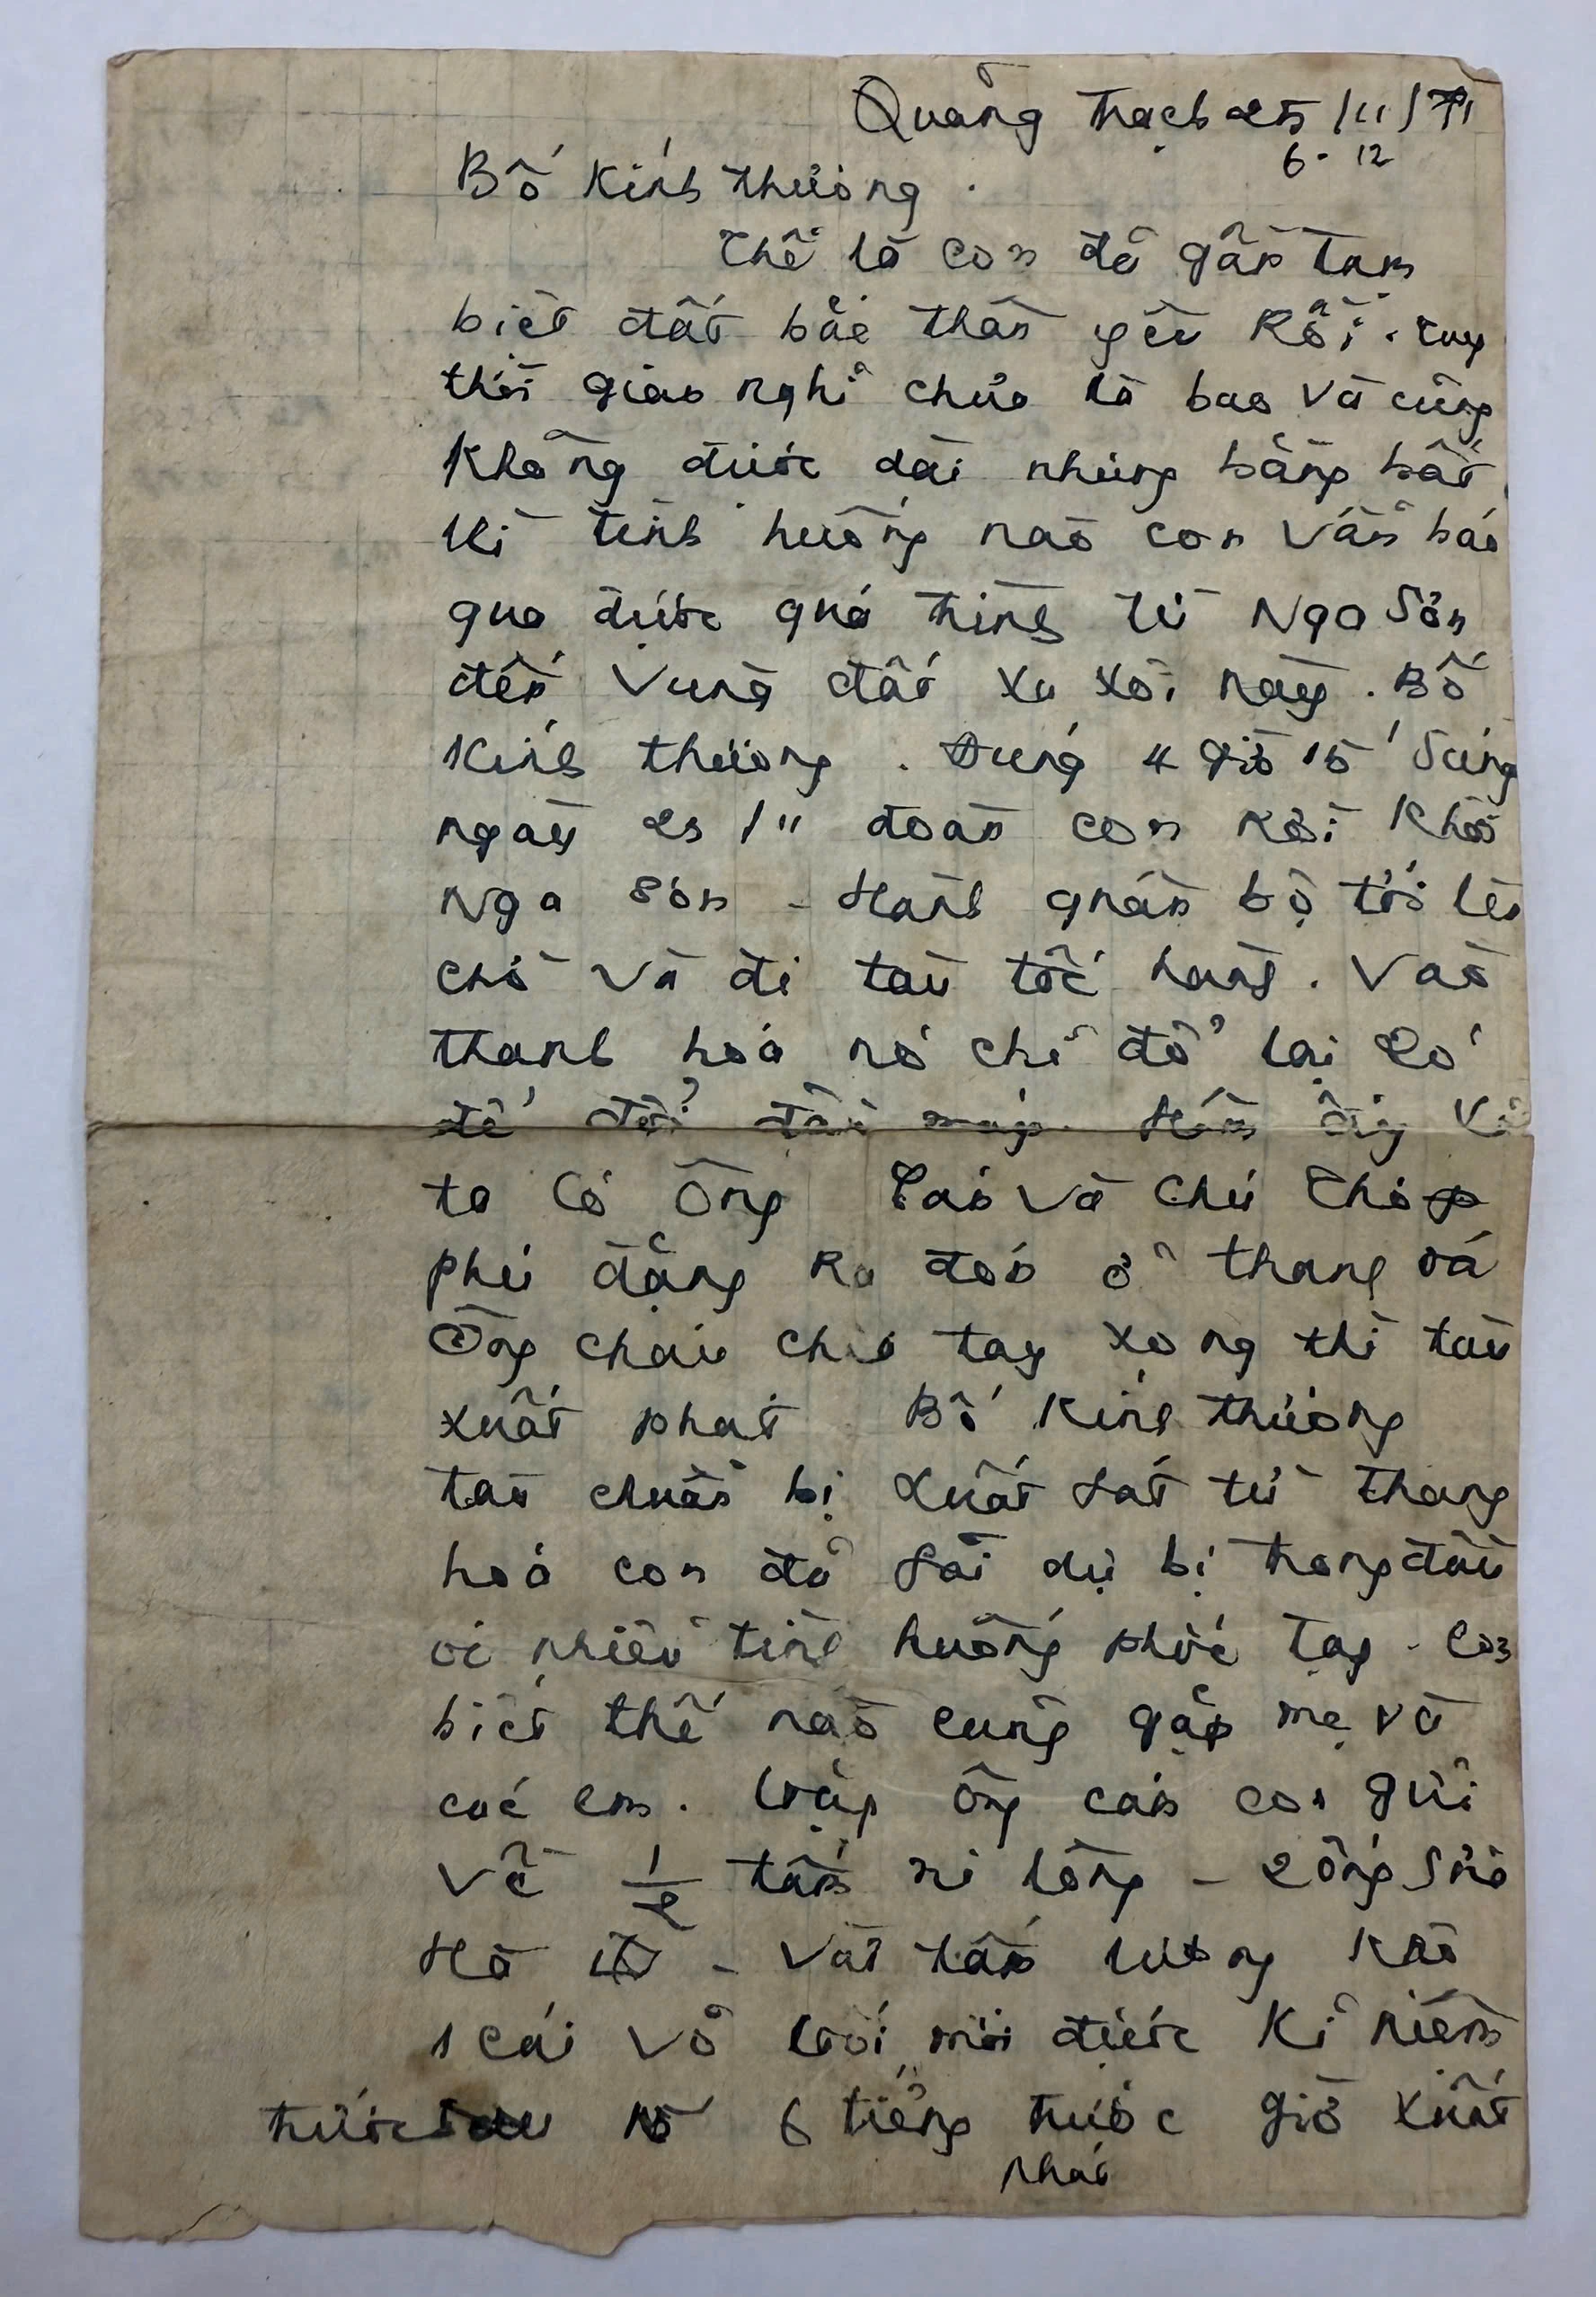 Quảng Trạch 25/11/71
6-12
Bố kính thương.
Thế là con đã gần tạm
biệt đất bắc thân yêu rồi. tuy
thời gian nghỉ chưa là bao và cũng
không được dài nhưng bằng bất
kì tình huống nào con vẫn báo
qua được quá trình từ Nga Sơn
đến vùng đất xa xôi này. Bố
kính thương. Đúng 4 giờ 15' sáng
ngày 25/11 đoàn con rời khỏi
Nga Sơn - Hành quân bộ tới lèn
và đi tàu tốc hành. Vào
thanh hoá nó chỉ đỗ lại 20'
để đổi đầu máy. Hôm ấy
ta có ông và chú
phú đặng ra đón ở thang oá
Ông cháu chia tay xong thì tàu
xuất phát. Bố kính thương
tàu chuẩn bị xuất fát từ thang
hoá con đã fải dự bị trong đầu
vì nhiều tình huống phức tạp. Con
biết thế nào cũng gặp mẹ và
các em. ông cán con gửi
về 1/2 tấm ni lông - 2 ống sữa
- Vài
1 cái vỏ mới được kỉ niệm
trước 6 tiếng trước giờ xuất
phát